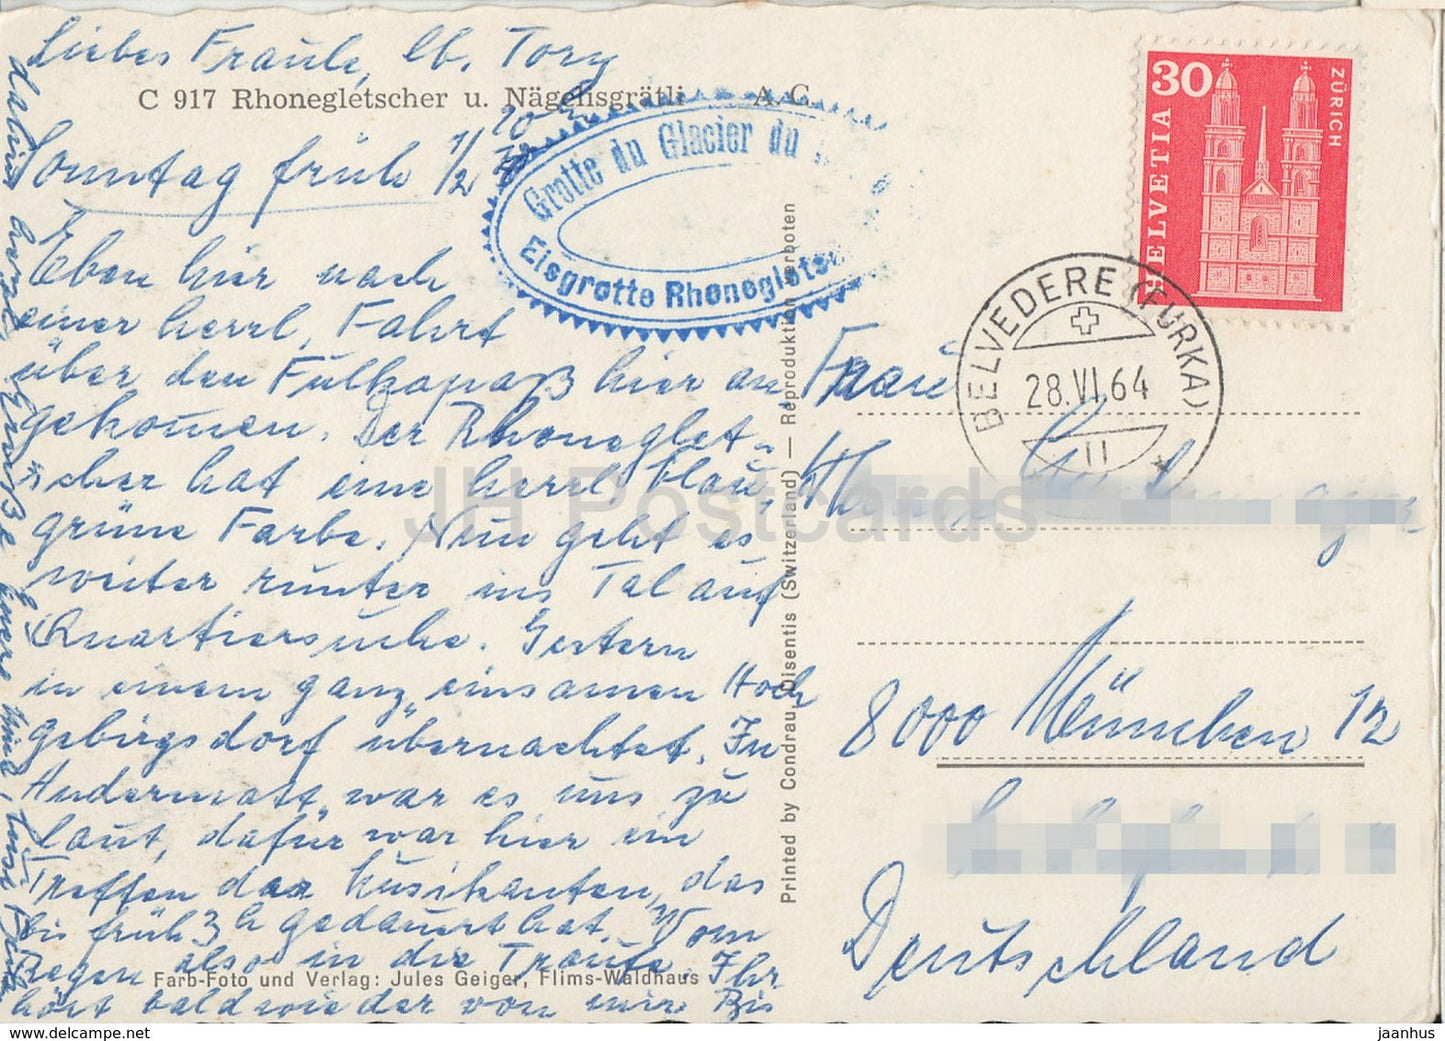 Liebes Fraule, lb. Tory
C 917 Rhonegletscher u. Nägelisgrätli A. G.
Sonntag früh 1/2
Grotte du Glacier du
Eisgrotte Rhonegletsc
Eben hier nach
einer herrl. Fahrt
über den Fulkapaß hier an
gekommen. Der Rhoneglet-
scher hat eine herrl blau,
grüne Farbe. Nun geht es
weiter runter ins Tal auf
Quartiersuche. Gestern
in einem ganz einsamen Hoch
gebirgsdorf übernachtet. In
Andermatt war es uns zu
laut, dafür war hier ein
Treffen der Musikanten, das
bis früh 3 h gedauert hat. Vom
Regen also in die Traufe. Ihr
Farb-Foto und Verlag: Jules Geiger, Flims-Waldhaus
hört bald wieder von mir Bis
Printed by Condrau, Disentis (Switzerland) — Reproduktion verboten
30
ZÜRICH
HELVETIA
BELVEDERE (FURKA)
28.VI.64
11
Frau
8000 München 12
Deutschland
JH Postcards
delcampe.net
jaanhus